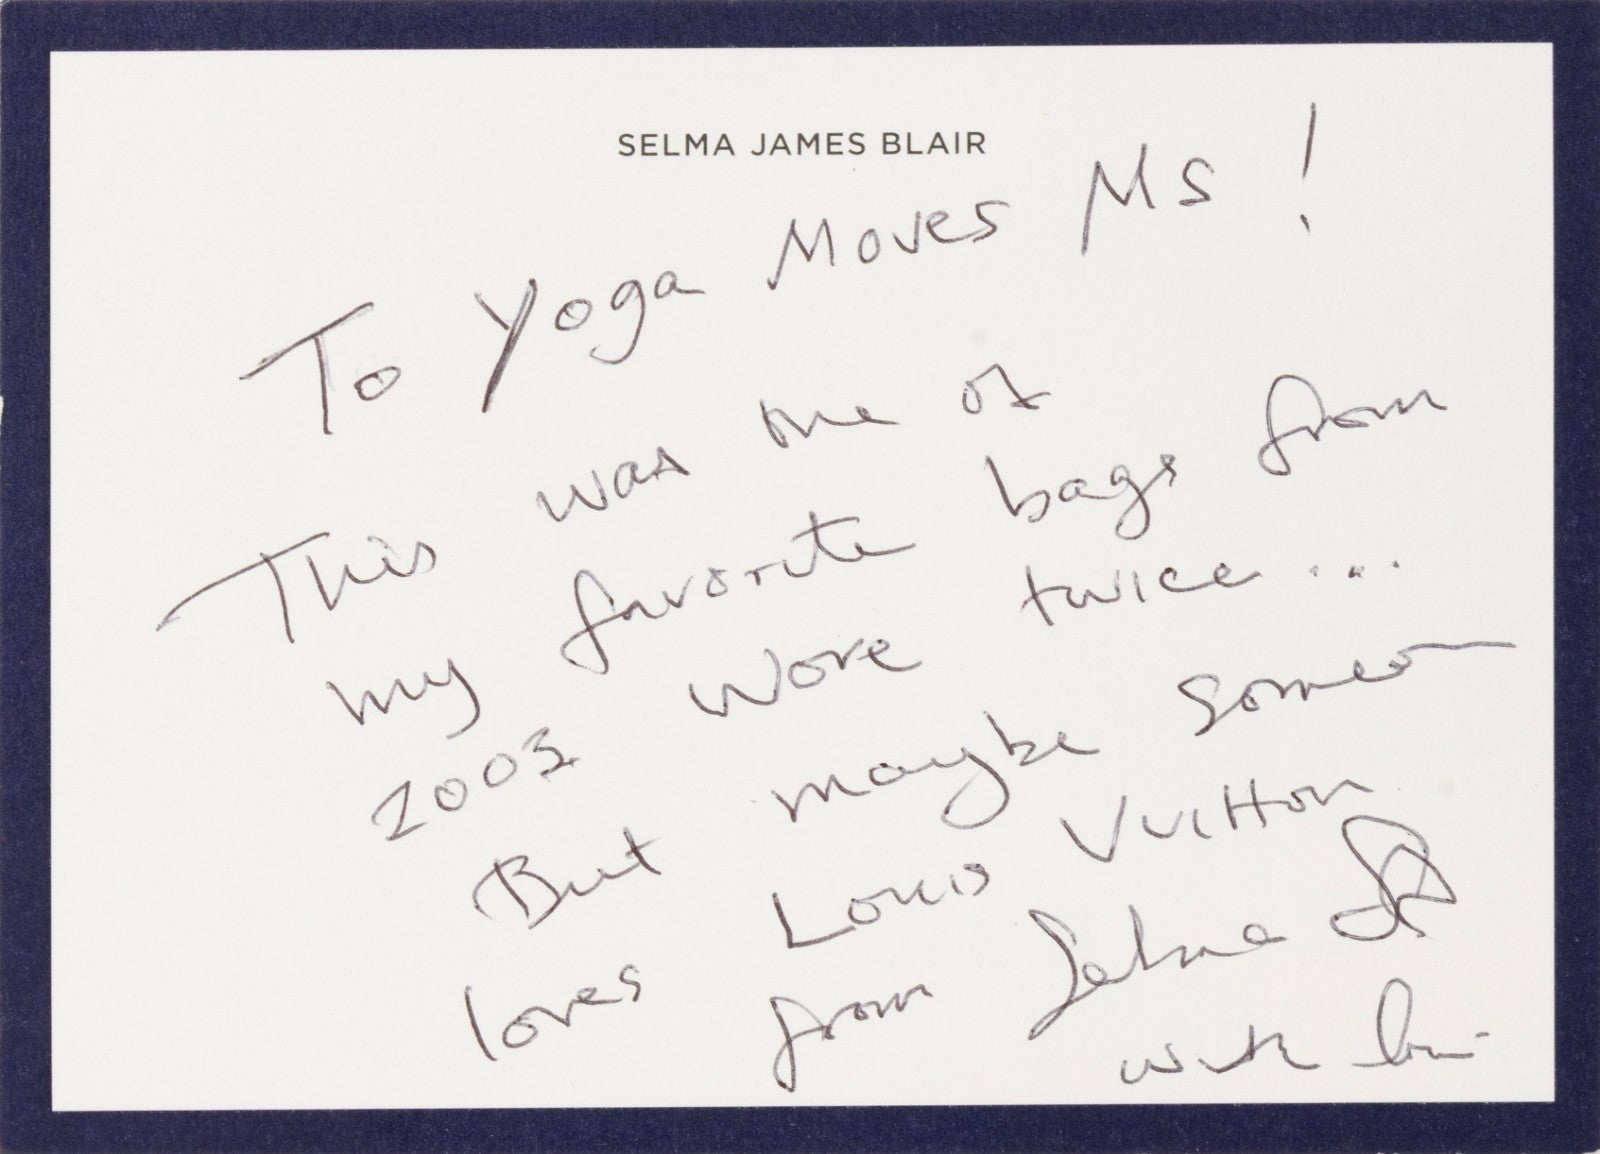 SELMA JAMES BLAIR
To Yoga Moves MS!
This was one of
my favorite bags from
2003 wore twice...
But maybe someone
loves Louis Vuitton
from Selma
with love